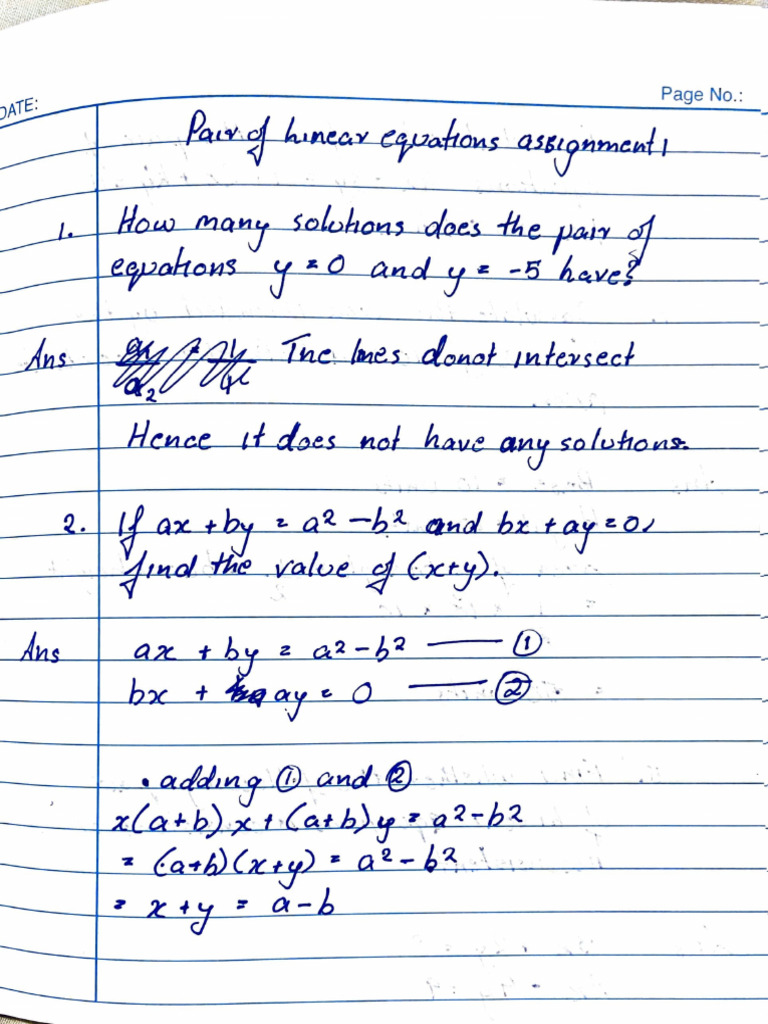 DATE:
Page No.:
Pair of Linear equations assignment 1
1. How many solutions does the pair of
equations y = 0 and y = -5 have?
Ans The lines donot intersect
Hence it does not have any solutions.
2. If ax + by = a² - b² and bx + ay = 0,
find the value of (x+y).
Ans ax + by = a² - b² —— ①
bx + ay = 0 —— ②
• adding ① and ②
x(a+b) x + (a+b) y = a² - b²
= (a+b)(x+y) = a² - b²
= x + y = a - b